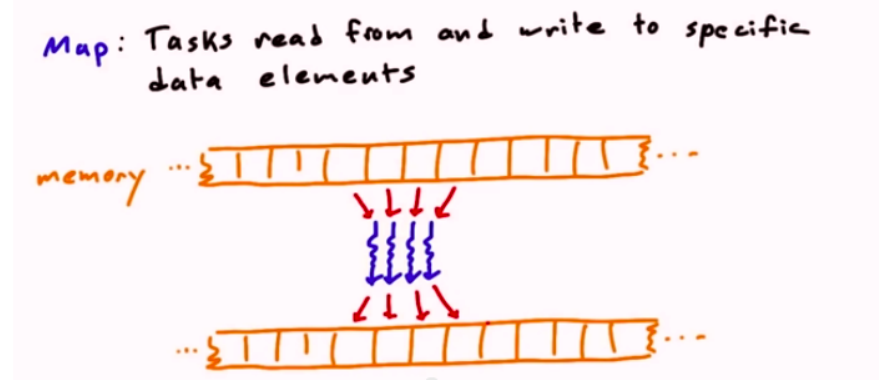 Map: Tasks read from and write to specific
data elements
memory